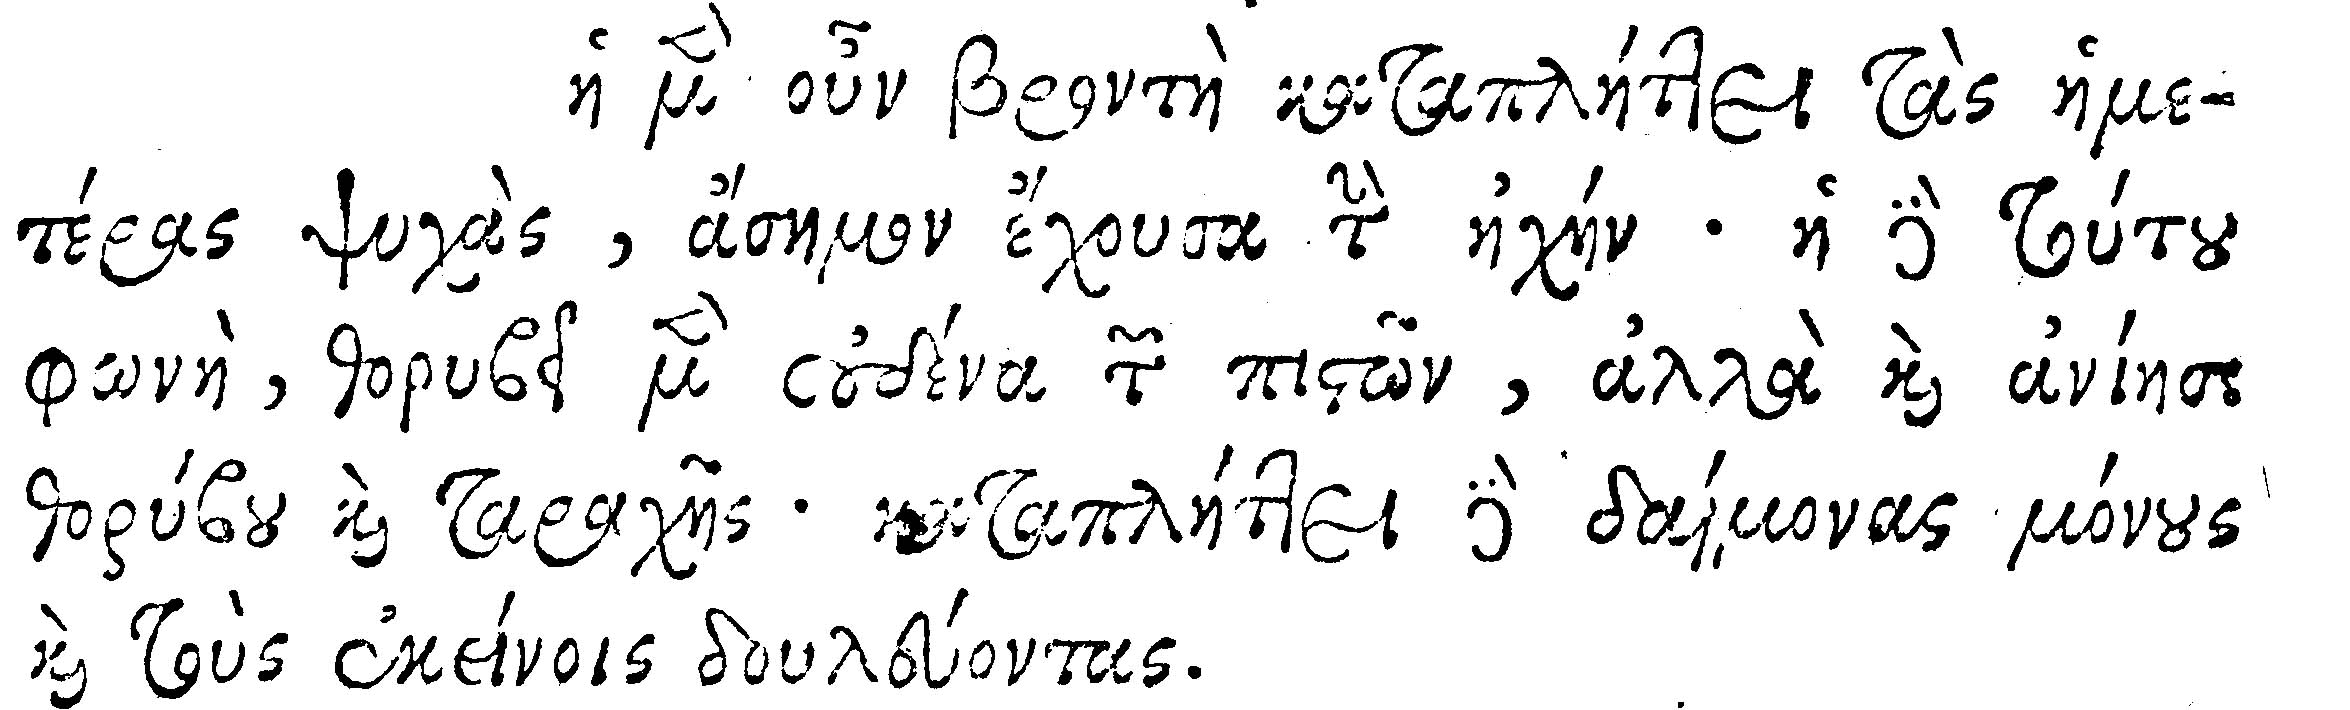 ἡ μὲν οὖν βροντὴ καταπλήττει τὰς ἡμε-
τέρας ψυχὰς, ἄσημον ἔχουσα τὴν ἠχήν · ἡ δὲ τούτου
φωνὴ, θορυβεῖ μὲν οὐδένα τῶν πιστῶν, ἀλλὰ καὶ ἀνίησι
θορύβου καὶ ταραχῆς · καταπλήττει δὲ δαίμονας μόνους
καὶ τοὺς ἐκείνοις δουλεύοντας.